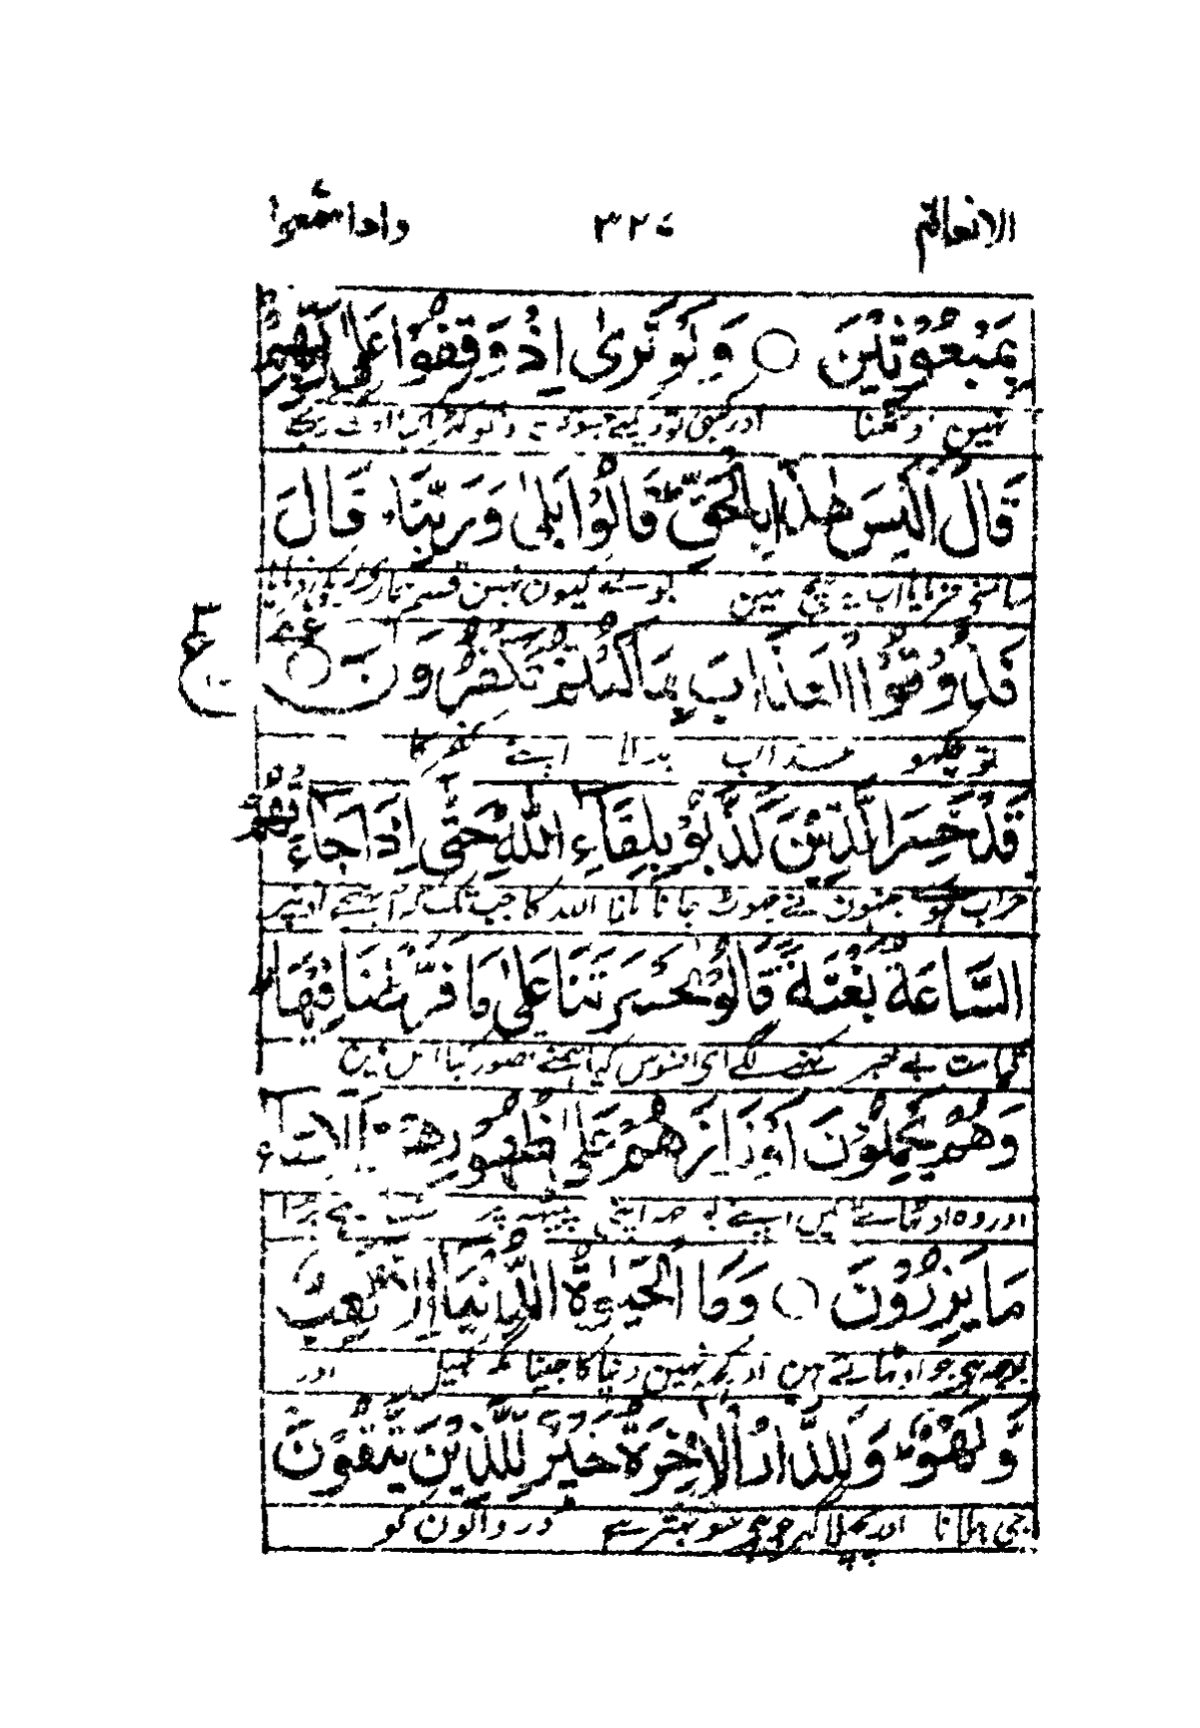 الانعام ٣٢٠ واذاسمعوا
بِمَبْعُوْثِيْنَ ○ وَلَوْ تَرٰى اِذْ وُقِفُوْا عَلٰى رَبِّهِمْ
نہین اوٹھنا اور کبھی تو دیکھے جسوقت
قَالَ اَلَيْسَ هٰذَا بِالْحَقِّ قَالُوْا بَلٰى وَرَبِّنَا قَالَ
سامنے فرمایا اب یہ سچ نہین بولے کیون نہین قسم ہماری رب کی فرمایا
ع
فَذُوْقُوا الْعَذَابَ بِمَا كُنْتُمْ تَكْفُرُوْنَ ○
تو چکھو عذاب بدلا اپنے کفر کا
قَدْ خَسِرَ الَّذِيْنَ كَذَّبُوْ بِلِقَآءِ اللّٰهِ حَتّٰى اِذَا جَآءَتْهُمُ
خراب ہوے جنہون نے جھوٹ جانا ملنا اللہ کا جب تک کہ آپہنچے اونپر
السَّاعَةُ بَغْتَةً قَالُوْا يٰحَسْرَتَنَا عَلٰى مَا فَرَّطْنَا فِيْهَا
قیامت بے خبر کہنے لگے ای افسوس کیا ہمنے قصور کیا اس مین
وَهُمْ يَحْمِلُوْنَ اَوْزَارَهُمْ عَلٰى ظُهُوْرِهِمْ اَلَا سَآءَ
اور وہ اوٹھاتے ہین اپنے بوجھ اپنی پیٹھ پر سنتا ہے برا
مَا يَزِرُوْنَ ○ وَمَا الْحَيٰوةُ الدُّنْيَا اِلَّا لَعِبٌ
بوجھ ہی جو اوٹھاتے ہین اور کچھ نہین دنیا کا جینا مگر کھیل اور
وَّلَهْوٌ وَلَلدَّارُ الْاٰخِرَةُ خَيْرٌ لِّلَّذِيْنَ يَتَّقُوْنَ
جی بہلانا اور پچھلا گھر جو ہی سو بہتر ہے ڈر والون کو